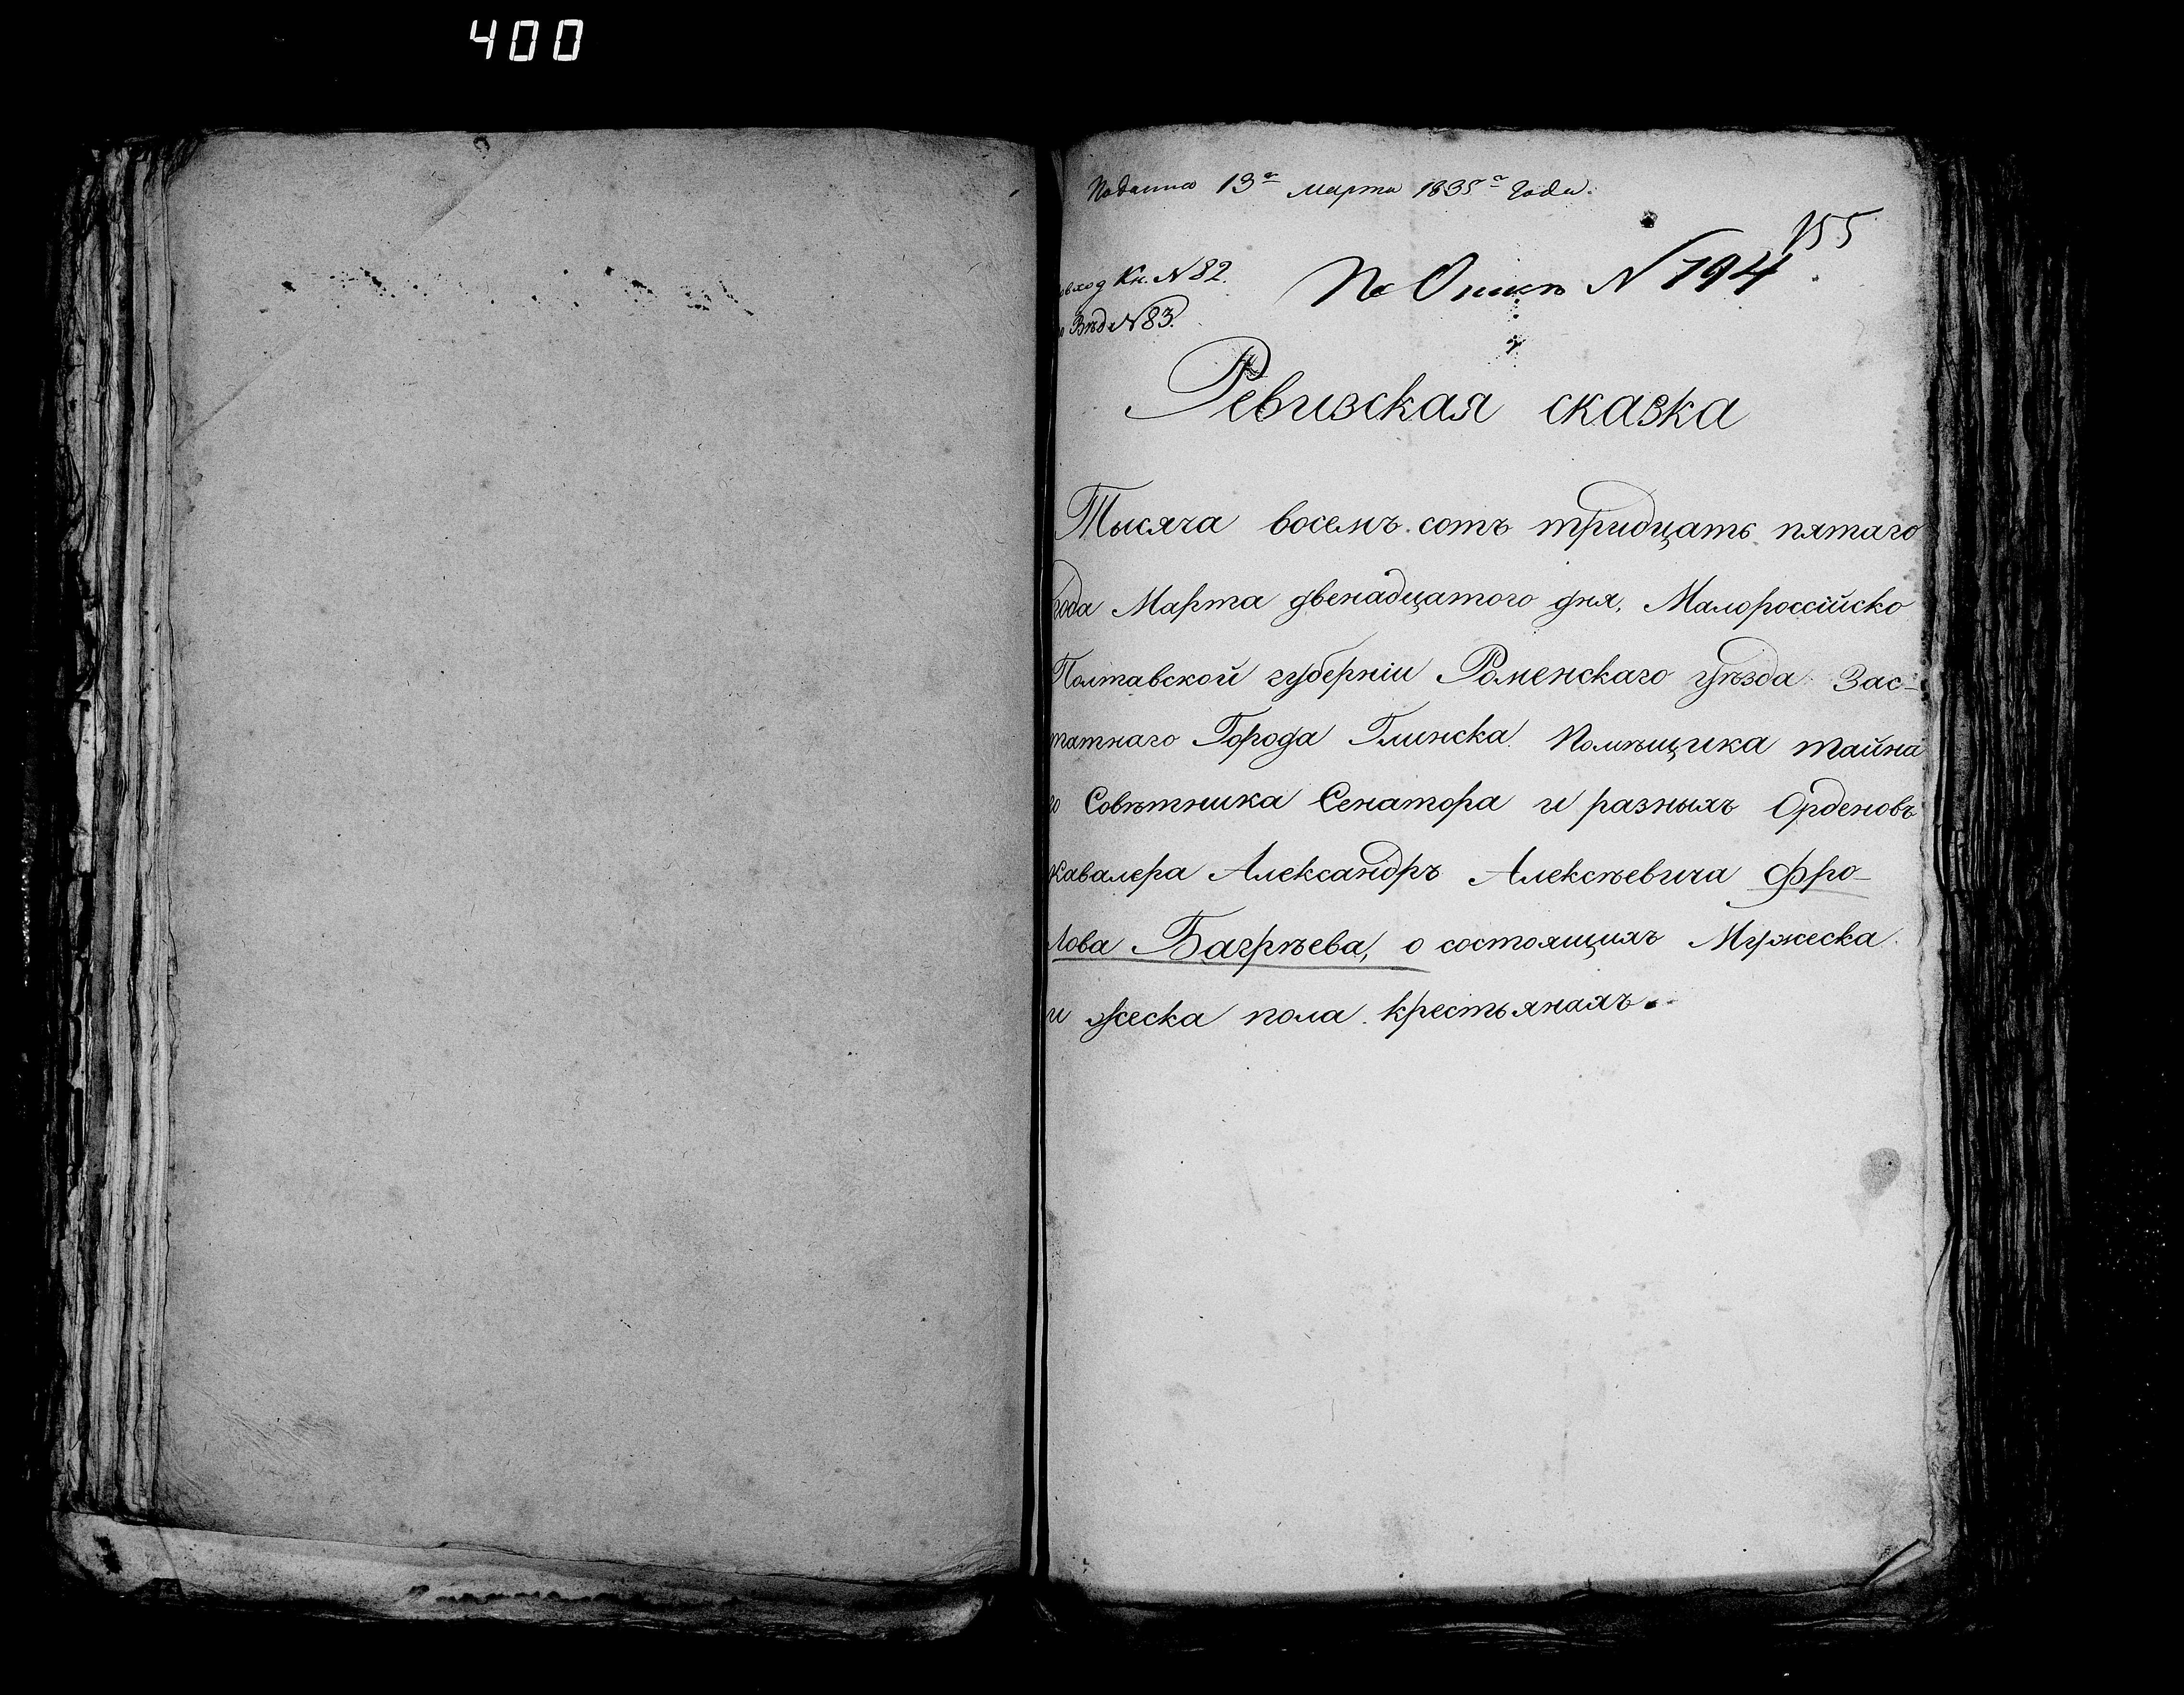 400
Подана 13го марта 1835го года.
155
вход Кн. N 82.
По Описи N 194
Вѣд N 83.
Ревизская сказка
Тысяча восемъ сотъ тридцать пятаго
года Марта двенадцатого дня, Малороссійско
Полтавской губерніи Роменскаго уѣзда Зас-
татнаго Города Глинска Помѣщика тайна
го Совѣтника Сенатора и разныхъ Орденовъ
Кавалера Александръ Алексѣевича Фро-
лова Багрѣева, о состоящихъ Мужеска
и жеска пола крестьянахъ.